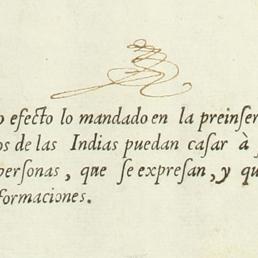 o efecto lo mandado en la preinser
os de las Indias puedan casar à s
personas, que se expresan, y qu
formaciones.